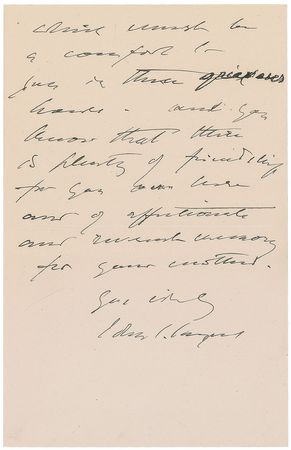 which must be
a comfort to
you in these grievous
hours - and you
know that there
is plenty of friendship
for you over here
and of affectionate
and reverent memory
for your mother.